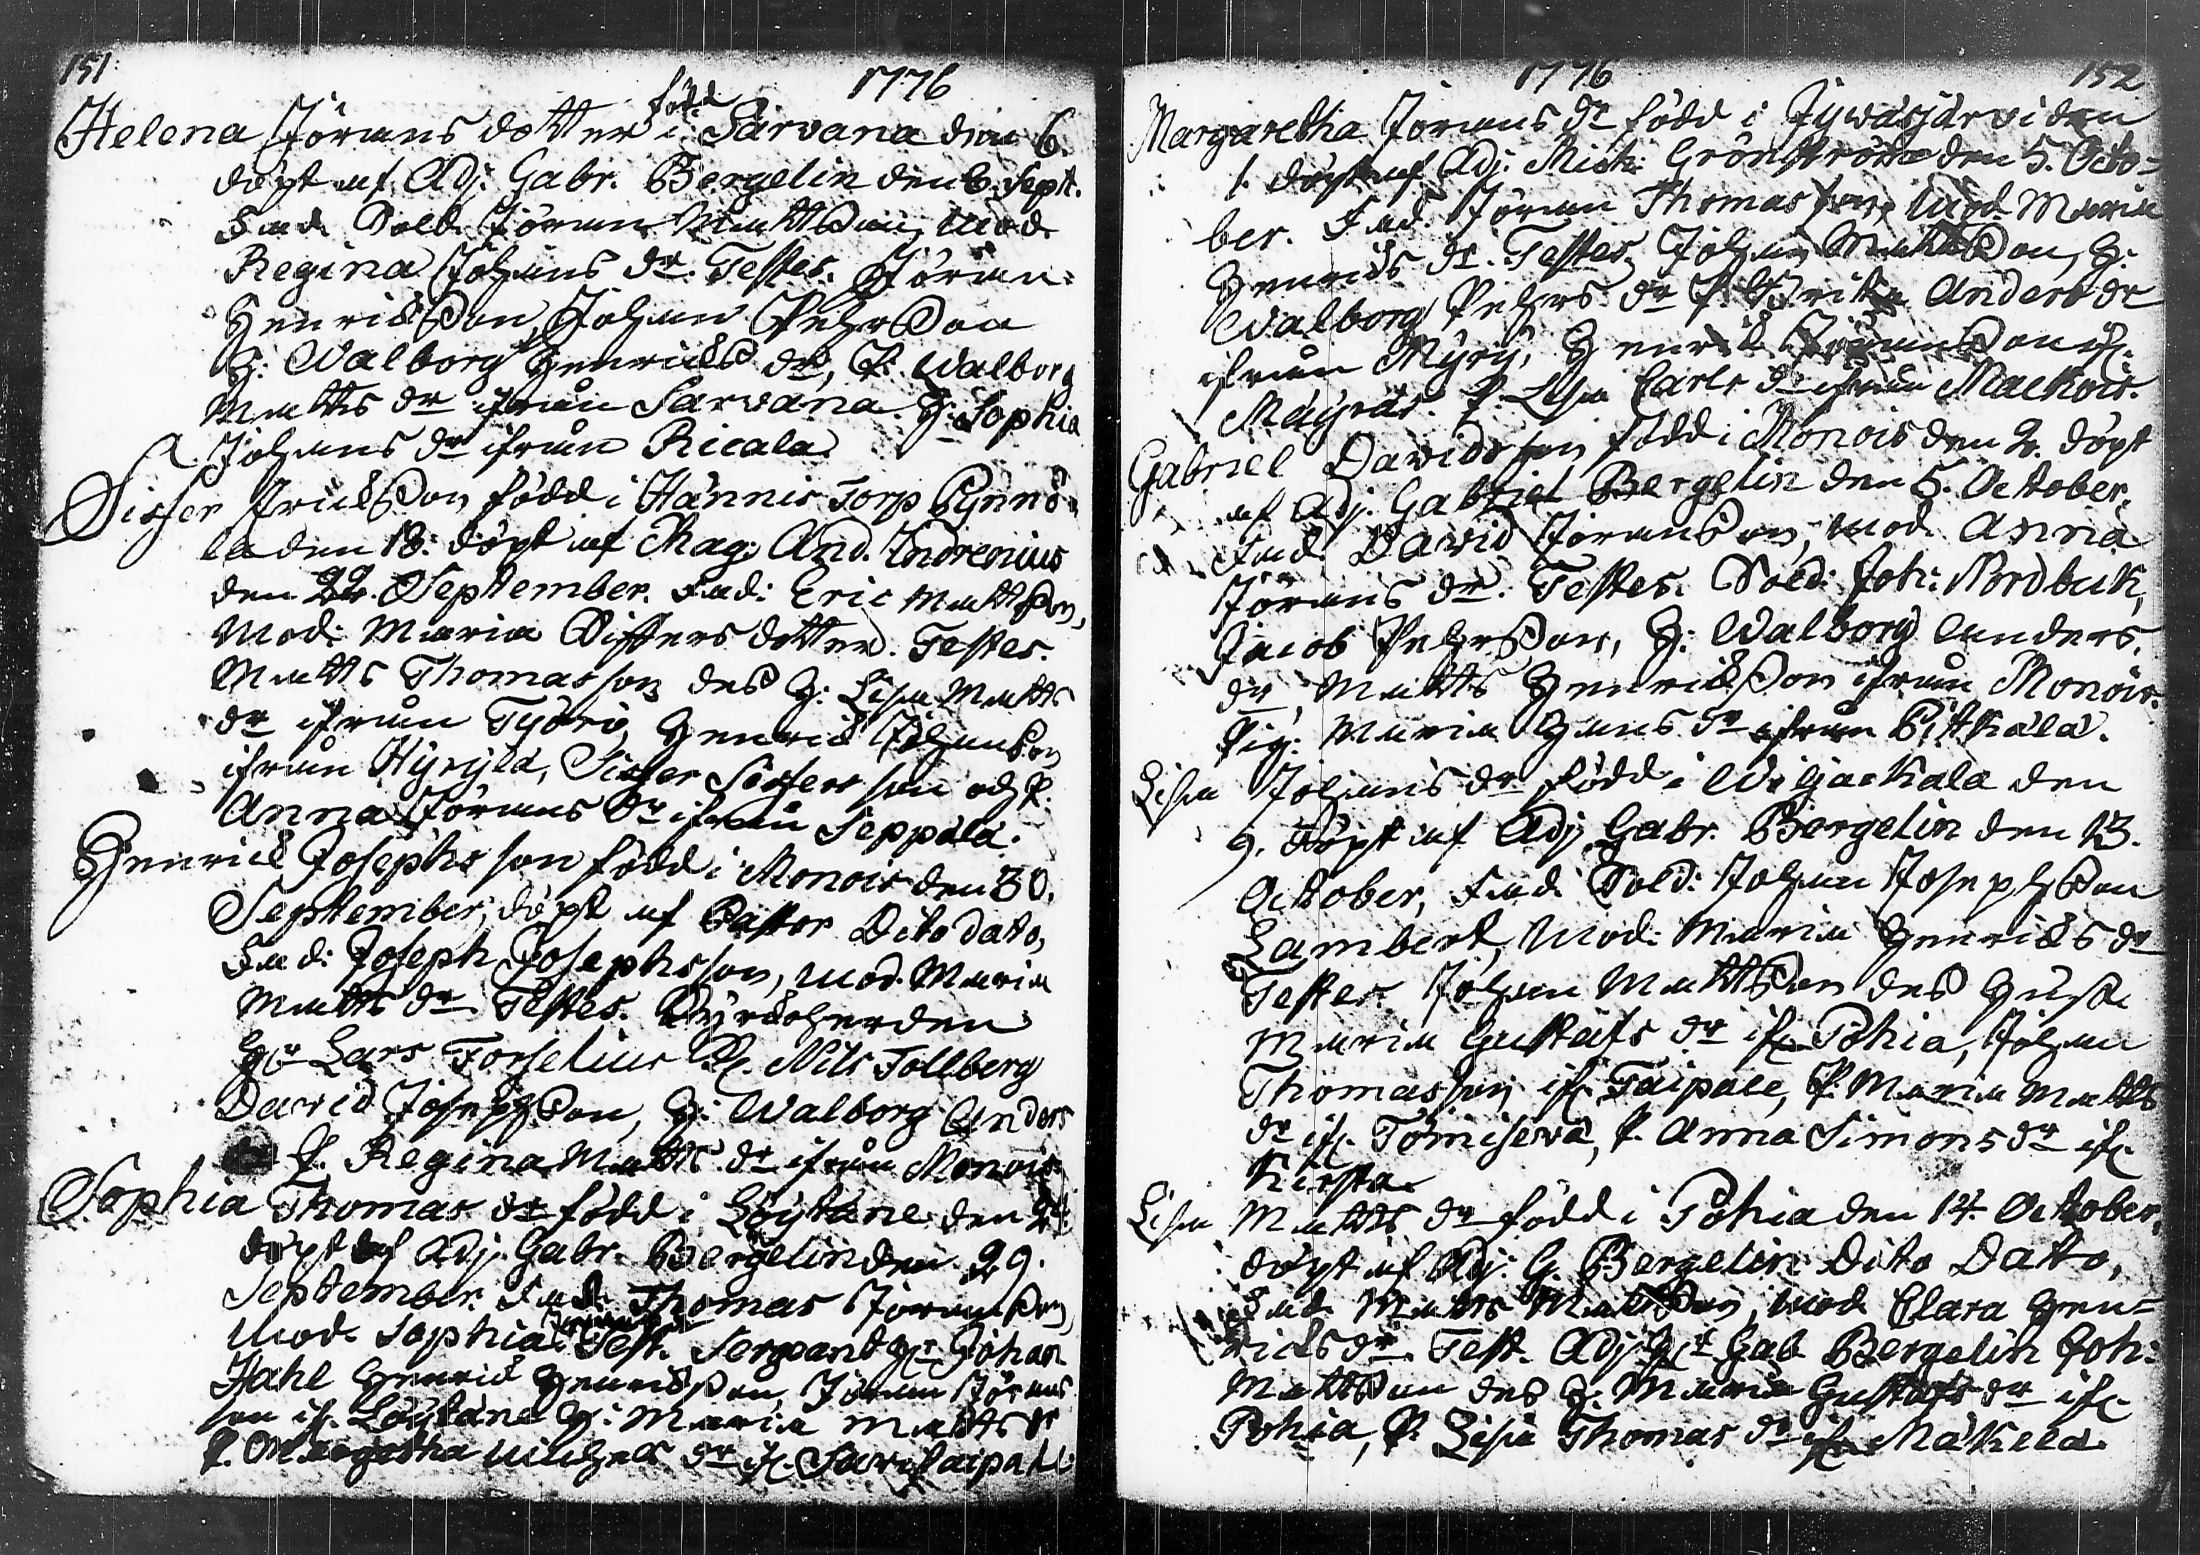 151.
1776
Helena Jörans dotter född i Sarvana den 6.
döpt af Adj. Gabr. Bergelin den 8. Sept.
Fad. Sold. Jöran Mattsson, Mod.
Regina Johans dr. Testes. Jöran
Henricsson, Johan Pehrsson
H: Walborg Henrics dr, P. Walborg
Matts dr ifrån Sarvana. H: Sophia
Johans dr ifrån Ricala.
Sisfer Ericsson född i Hännis Torp Pynnö-
la den 18. döpt af Mag: And. Indrenius
den 22. September. Fad: Eric Mattsson,
Mod: Maria Sisfersdotter. Testes.
Matts Thomasson des H: Lisa Matts
dr ifrån Työriö, Henric Johansson
ifrån Hyrylä, Sisfer Sisfersson och P.
Anna Jörans dr ifrån Seppälä.
Henric Josephsson född i Monois den 30.
September, döpt af Pastor Dito dato,
Fad: Joseph Josephsson, Mod. Maria
Matts dr Testes. Kyrckoherden
Hr Lars Forselius Nils Tollberg
David Josephsson, H: Walborg Anders
P. Regina Matts dr ifrån Monois.
Sophia Thomas dr född i Löytäne den
döpt af Adj. Gabr. Bergelin den 29.
September. Fad. Thomas Joransson,
Mod. Sophia Test. Sergeant Hr Johan
Hahl Henric Henricsson, Jöran Jörans
son if. Löytäne H: Maria Matts dr
P. Margetha Michels dr if. Savitaipale

1776
152
Margaretha Jörans dr född i Jywäsjärvi den
1. döpt af Adj. Mich: Grönstrand den 5. Octo-
ber. Fad. Jöran Thomasson, Mod. Maria
Henrics dr. Testes. Johan Mattsson, H:
Walborg Pehrs dr P. Brita Anders dr
ifrån Myry, Henric Jöransson if.
Mäyräs. P. Lisa Carls dr ifrån Mackois.
Gabriel Davidsson född i Monois den 2. döpt
af Adj. Gabriel Bergelin den 5. October.
Fad. David Joransson, Mod. Anna
Jörans dr. Testes. Sold: Joh: Nordbuk,
Jacob Pehrsson, H: Walborg Anders
dr, Matts Henricsson ifrån Monois.
Pig: Maria Hans dr ifrån Pitkälä.
Lisa Johans dr född i Wiljackala den
9. döpt af Adj Gabr. Bergelin den 13.
October, Fad. Sold: Johan Josephsson
Lambert, Mod: Maria Henrics dr
Testes. Johan Mattsson des Hust.
Maria Gustafs dr if. Pohia, Johan
Thomasson if. Taipale, P. Maria Matts
dr if. Tömisevä, P. Anna Simons dr if.
Kirsta.
Lisa Matts dr född i Pohia den 14 October,
döpt af Adj. G. Bergelin Dito Dato,
Fad. Matts Mattsson, Mod Clara Hen-
rics dr. Test. Adj. Hr Gab Bergelin Joh:
Mattsson des H. Maria Gustafs dr if.
Pohia, P. Lisa Thomas dr if. Mäkelä.